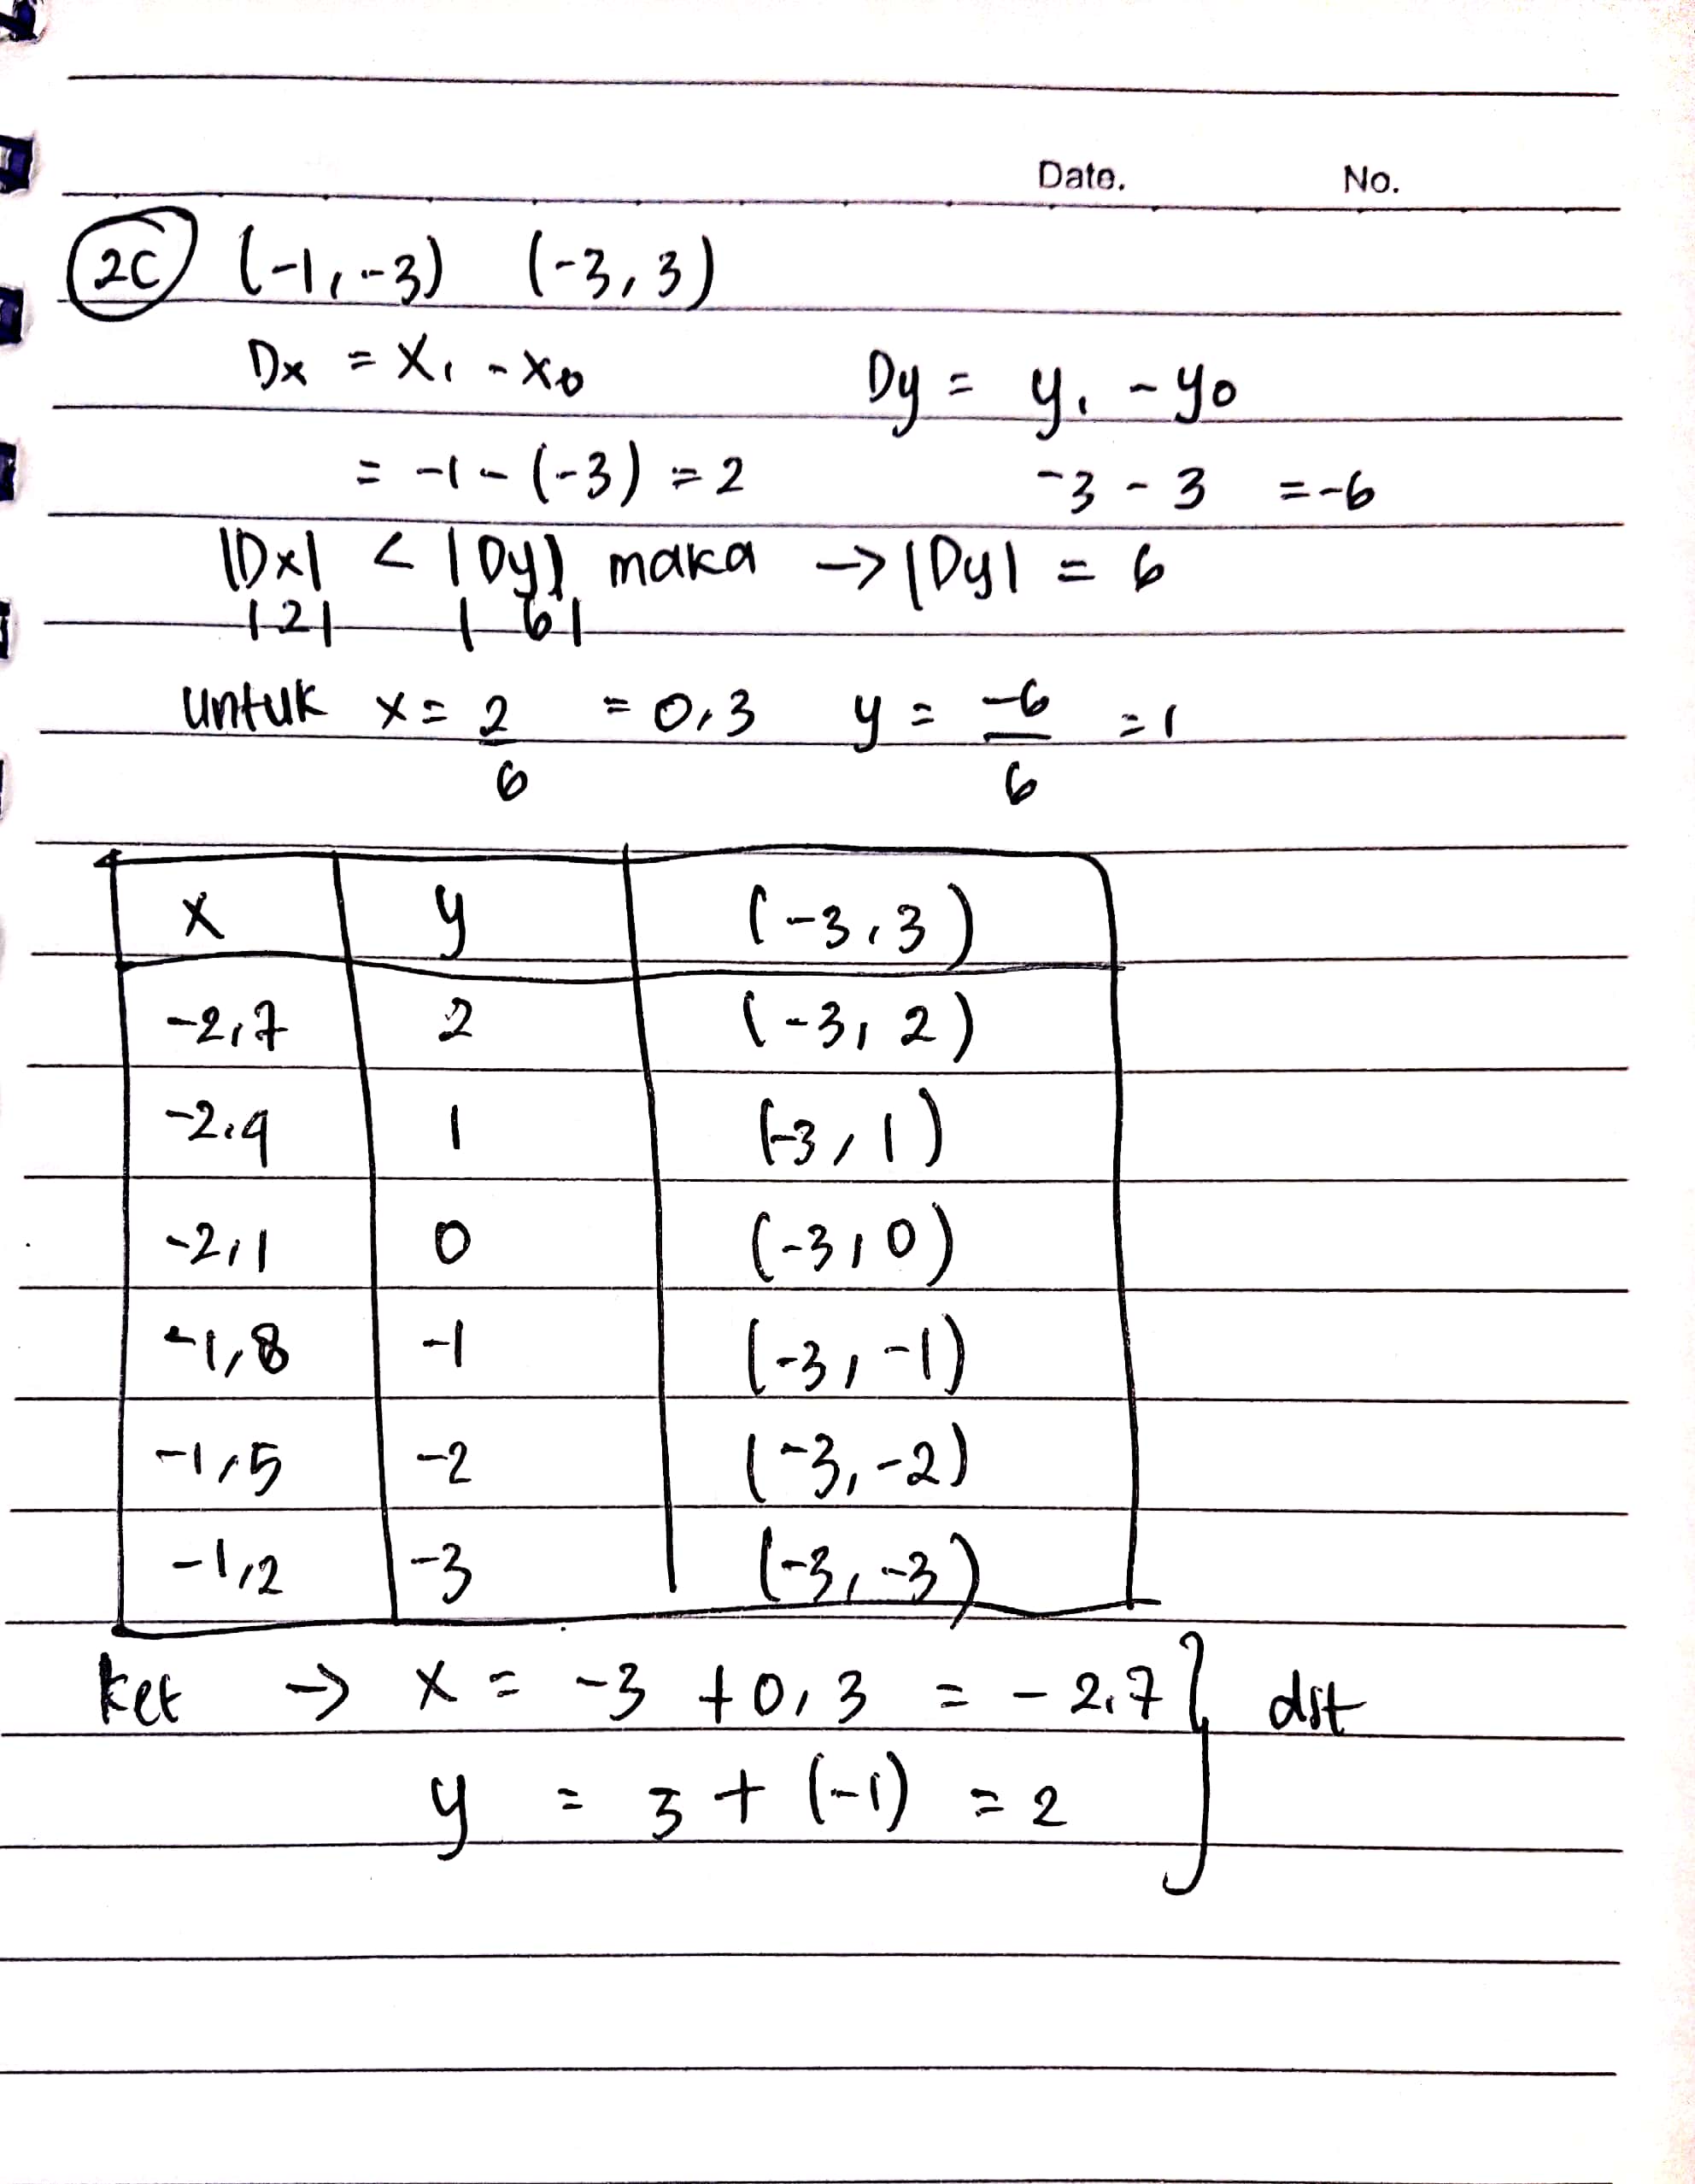 Date. No.
2C (-1,-3) (-3,3)
Dx = x₁ - x₀ Dy = y₁ - y₀
= -1 - (-3) = 2 -3 - 3 = -6
|Dx| < |Dy| maka -> |Dy| = 6
|2| |6|
untuk x = 2/6 = 0,3 y = -6/6 = 1
x y (-3,3)
-2,7 2 (-3,2)
-2,4 1 (-3,1)
-2,1 0 (-3,0)
-1,8 -1 (-3,-1)
-1,5 -2 (-3,-2)
-1,2 -3 (-3,-3)
ket -> x = -3 + 0,3 = -2,7 } dst
y = 3 + (-1) = 2